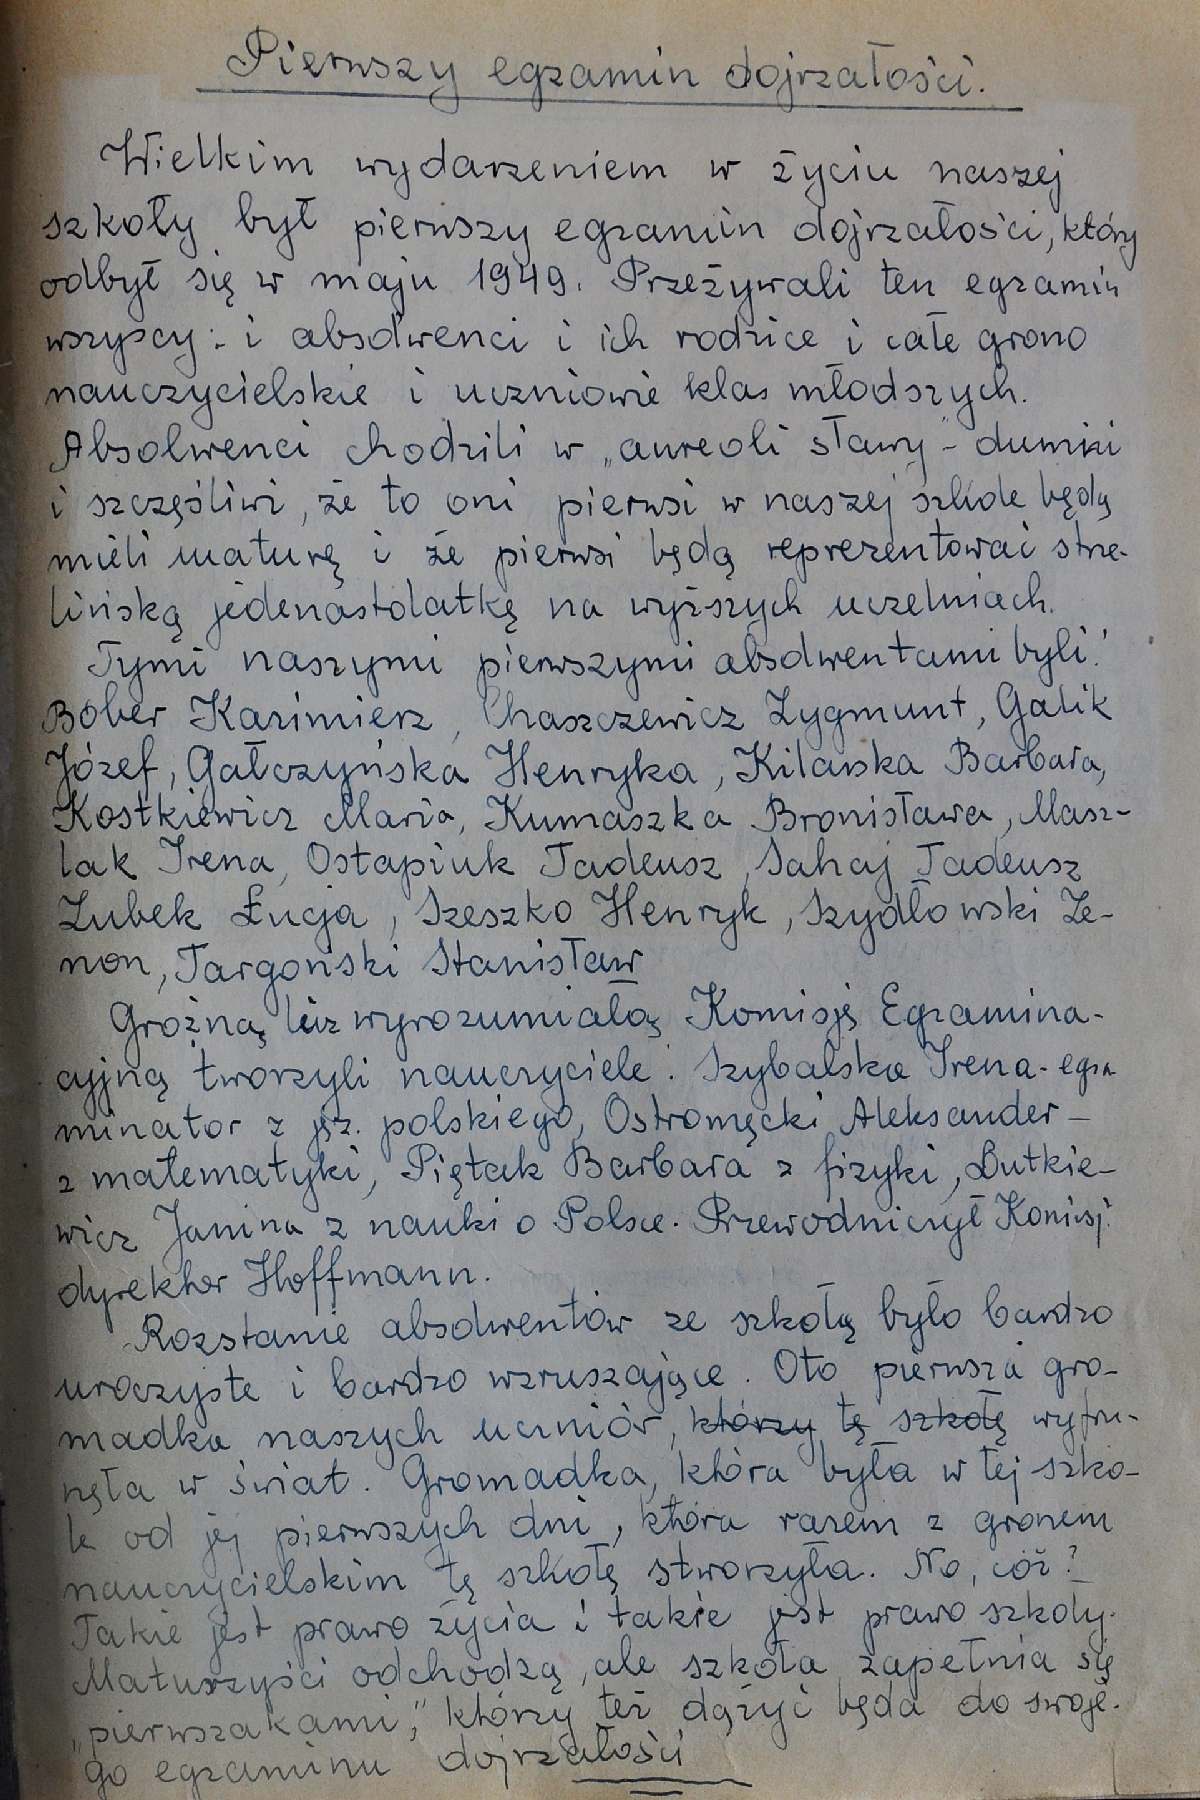 Pierwszy egzamin dojrzałości.
Wielkim wydarzeniem w życiu naszej
szkoły był pierwszy egzamin dojrzałości, który
odbył się w maju 1949. Przeżywali ten egzamin
wszyscy: i absolwenci i ich rodzice i całe grono
nauczycielskie i uczniowie klas młodszych.
Absolwenci chodzili w „aureoli sławy" - dumni
i szczęśliwi, że to oni pierwsi w naszej szkole będą
mieli maturę i że pierwsi będą reprezentować strze-
lińską jedenastolatkę na wyższych uczelniach.
Tymi naszymi pierwszymi absolwentami byli:
Bober Kazimierz, Chaszczewicz Zygmunt, Galik
Józef, Gałczyńska Henryka, Kilarska Barbara,
Kostkiewicz Maria, Kumaszka Bronisława, Masz-
lak Irena, Ostapiuk Tadeusz, Sahaj Tadeusz
Zubek Łucja, Szeszko Henryk, Szydłowski Ze-
non, Targoński Stanisław
Groźną lecz wyrozumiałą Komisję Egzamina-
cyjną tworzyli nauczyciele: Szybalska Irena - egza
minator z jęz. polskiego, Ostromęcki Aleksander -
z matematyki, Piętak Barbara z fizyki, Dutkie-
wicz Janina z nauki o Polsce. Przewodniczył Komisji
dyrektor Hoffmann.
Rozstanie absolwentów ze szkołą było bardzo
uroczyste i bardzo wzruszające. Oto pierwsza gro-
madka naszych uczniów, którzy tę szkołę wyfru-
nęła w świat. Gromadka, która była w tej szko-
le od jej pierwszych dni, która razem z gronem
nauczycielskim tę szkołę stworzyła. No, cóż?
Takie jest prawo życia i takie jest prawo szkoły.
Maturzyści odchodzą, ale szkoła zapełnia się
„pierwszakami", którzy też dążyć będą do swoje-
go egzaminu dojrzałości